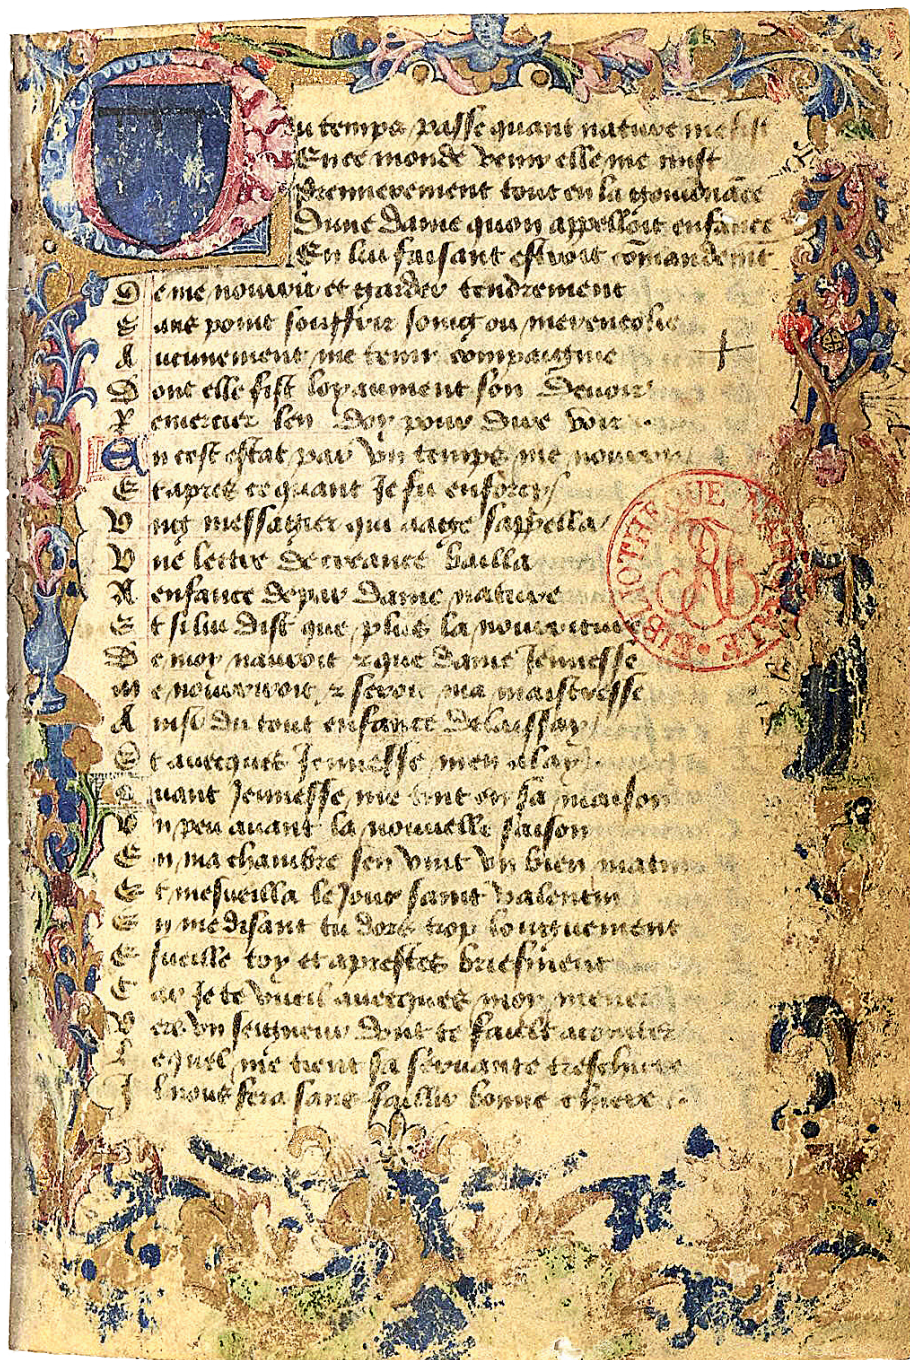 u temps passe quant nature me fist
En ce monde venir elle me mist
Premierement tout en la gouvernāce
Dune dame quon appelloit enfance
En lui faisant estroit cōmandemēt
De me nourrir et garder tendrement
Sans point souffrir soing ou merencolie
Aucunement me tenir compaignie
Dont elle fist loyaument son devoir
Remercier len doy pour dire voir
En cest estat par un temps me nourry
Et apres ce quant Je fu enforcy
Ung messagier qui aage sappella
Une lettre de creance bailla
A enfance de par dame nature
Et si lui dist que plus la nourriture
De moy nauroit et que dame Jennesse
Me nourriroit et seroit ma maistresse
Ainsi du tout enfance delaissay
Et avecques Jennesse men alay
Quant Jennesse me tint en sa maison
Un peu avant la nouvelle saison
En ma chambre sen vint un bien matin
Et mesveilla le Jour saint valentin
En me disant tu dors trop longuement
Esveille toy et aprestes briefment
Car Je te vueil avecques moy mener
Vers un seigneur dont te fault acointer
Lequel me tient sa servante treschiere
Il nous fera sans faillir bonne chiere
BIBLIOTHEQUE NATIONALE